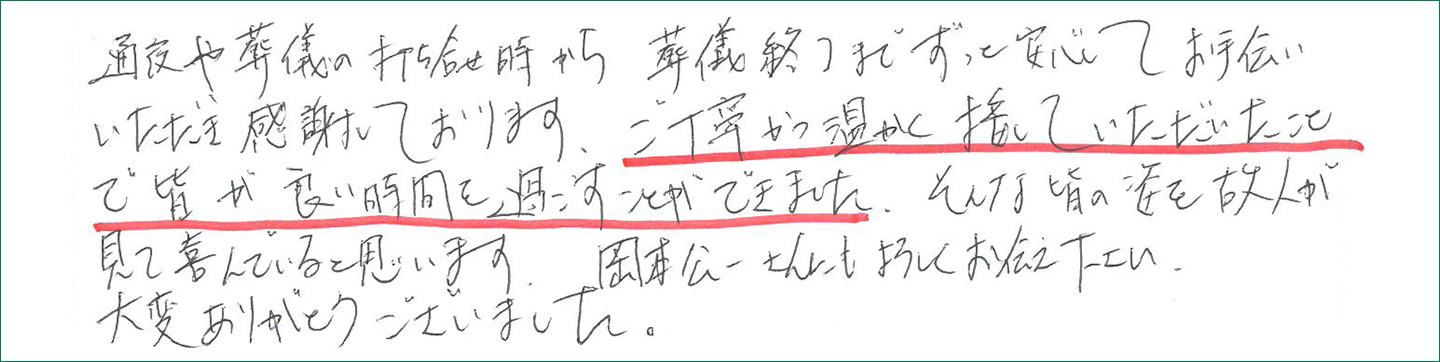 通夜や葬儀の打ち合せ時から 葬儀終了までずっと安心してお手伝い
いただき感謝しております、ご丁寧かつ温かく接していただいたこと
で皆が良い時間を過ごすことができました、そんな皆の姿を故人が
見て喜んでいると思います、岡本公一さんにもよろしくお伝え下さい、
大変ありがとうございました。